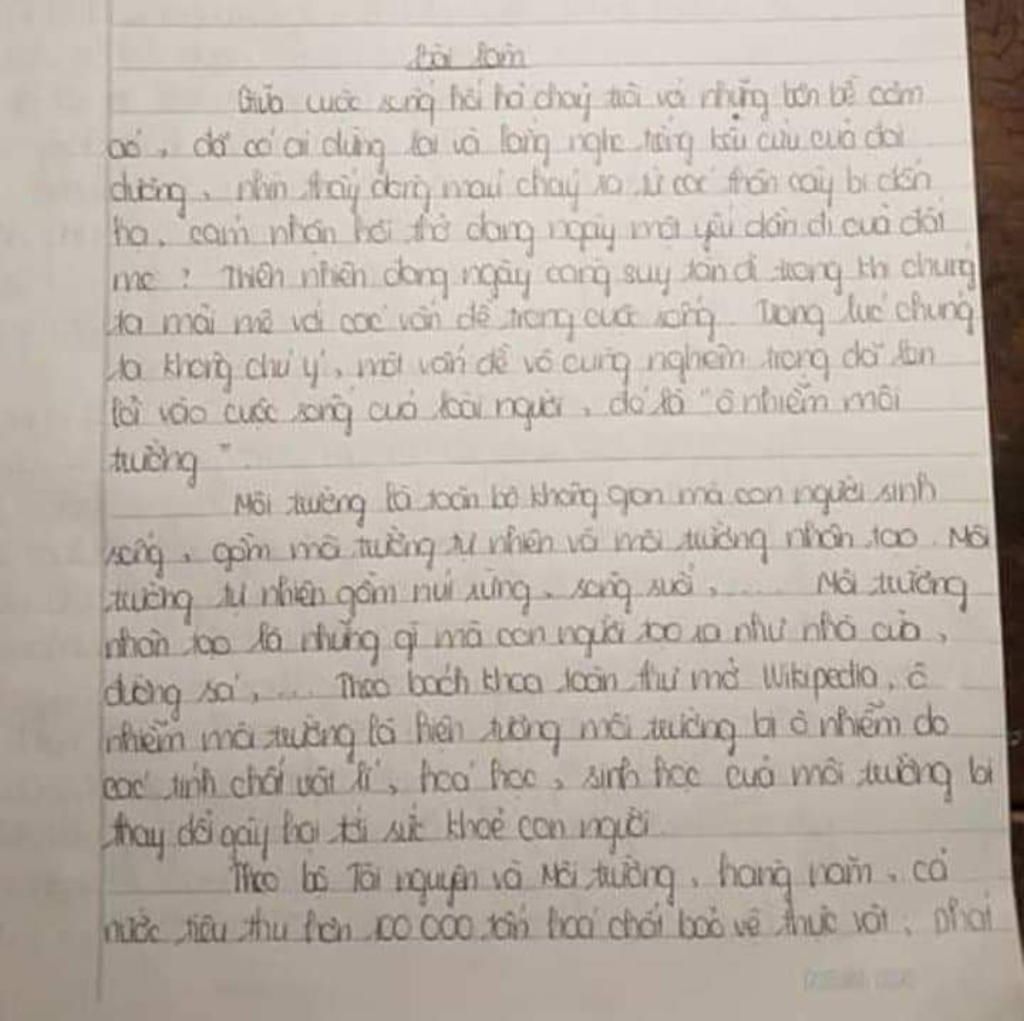 Bài làm
Giữa cuộc sống hối hả chảy trôi với những bộn bề cơm
áo, đã có ai dừng lại và lắng nghe tiếng kêu cứu của đại
dương, nhìn thấy dòng máu chảy ra từ các thân cây bị đốn
hạ, cảm nhận hơi thở đang ngày một yếu dần đi của đất
mẹ ? Thiên nhiên đang ngày càng suy tàn đi trong khi chúng
ta mải mê với các vấn đề trong cuộc sống. Trong lúc chúng
ta không chú ý, một vấn đề vô cùng nghiêm trọng đã len
lỏi vào cuộc sống của loài người, đó là "ô nhiễm môi
trường".
Môi trường là toàn bộ không gian mà con người sinh
sống, gồm môi trường tự nhiên và môi trường nhân tạo. Môi
trường tự nhiên gồm núi rừng, sông suối, ..... Môi trường
nhân tạo là những gì mà con người tạo ra như nhà cửa,
đường sá, .... Theo bách khoa toàn thư mở Wikipedia, ô
nhiễm môi trường là hiện tượng môi trường bị ô nhiễm do
các tính chất vật lí, hoá học, sinh học của môi trường bị
thay đổi gây hại tới sức khoẻ con người.
Theo bộ Tài nguyên và Môi trường, hàng năm, cả
nước tiêu thụ hơn 100 000 tấn hoá chất bảo vệ thực vật, phát